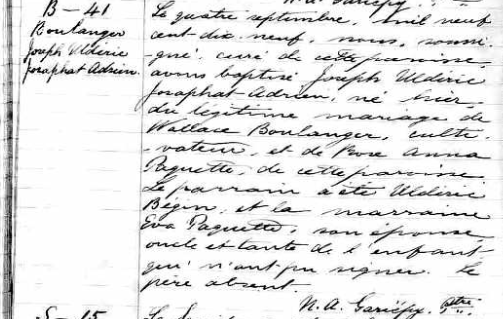 N. A. Gariépy
B — 41
Boulanger
Joseph Uldéric
Josaphat Adrien.
Le quatre septembre, mil neuf
cent dix-neuf, nous, soussi-
-gné, curé de cette paroisse,
avons baptisé Joseph Uldéric
Josaphat-Adrien, né hier,
du légitime mariage de
Wallace Boulanger, culti-
-vateur, et de Rose Anna
Paquette, de cette paroisse
Le parrain a été Uldéric
Bégin, et la marraine
Eva Paquette, son épouse
oncle et tante de l'enfant
qui n'ont pu signer. Le
père absent.
N. A. Gariépy. Ptre
S — 15